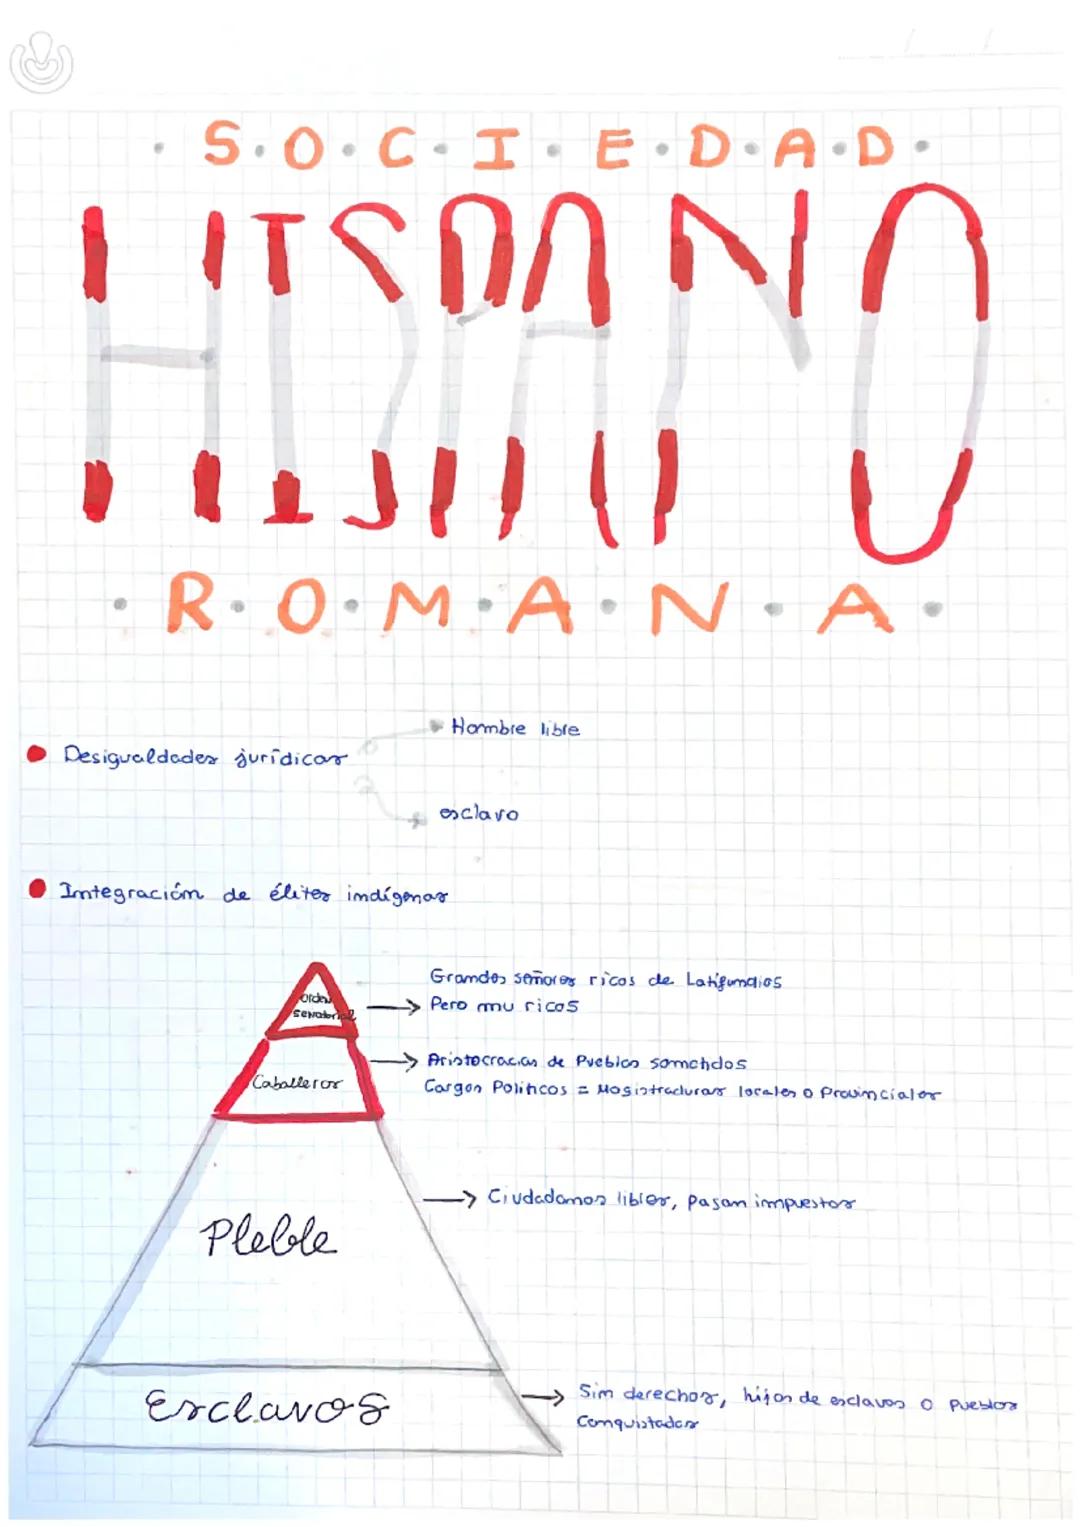 S.O.C.I.E.D.A.D.
HISPANO
R.O.M.A.N.A.
Desigualdades jurídicas
Hombre libre
esclavo
Integración de élites indígenas
Orden
senatorial
Grandes señores ricos de Latifundios
Pero mu ricos
Caballeros
Aristocracias de Pueblos sometidos
Cargos Políticos = Magistraduras locales o Provinciales
Pleble
Ciudadanos libres, pagan impuestos
Esclavos
Sin derechos, hijos de esclavos o Pueblos
Conquistados